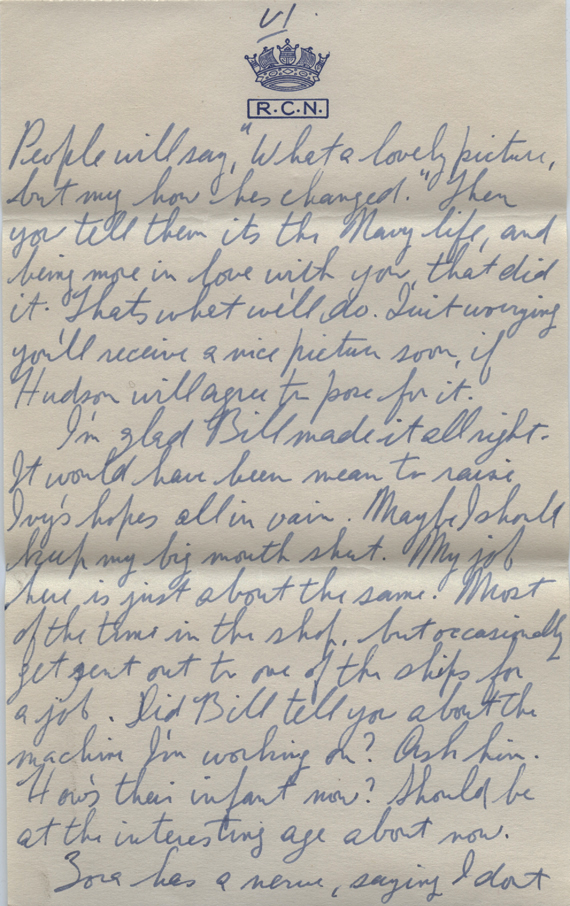 VI.
R.C.N.
People will say, "What a lovely picture,
but my how hes changed." Then
you tell them its the Navy life, and
being more in love with you, that did
it. Thats what we'll do. Quit worrying
you'll receive a nice picture soon, if
Hudson will agree to pose for it.
I'm glad Bill made it all right.
It would have been mean to raise
Ivy's hopes all in vain. Maybe I should
keep my big mouth shut. My job
here is just about the same. Most
of the time in the shop, but occasionally
get sent out to one of the ships for
a job. Did Bill tell you about the
machine I'm working on? Ask him.
How's their infant now? Should be
at the interesting age about now.
Zora has a nerve, saying I dont